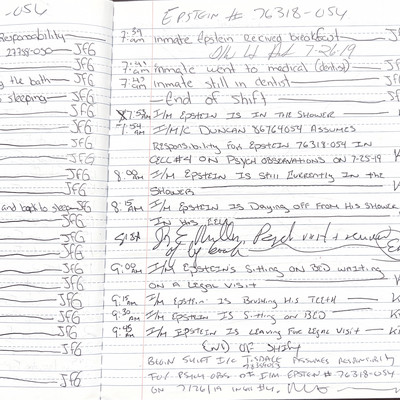 -054
EPSTEIN # 76318-054
Responsibility
22738-050 — JFG
JFG
JFG
the bath — JFG
sleeping — JFG
JFG
JFG
JFG
JFG
JFG
JFG
and back to sleep — JFG
JFG
JFG
JFG
JFG
JFG
JFG
JFG
JFG
7:39 am inmate Epstein recived breakfast
7-26-19
am inmate went to medical (dentist)
am inmate still in dentist
End of Shift
I/M EPSTEIN IS IN THE SHOWER
am I/M/C DUNCAN 86764054 ASSUMES
RESPONSIBILITY FOR EPSTEIN 76318-054 IN
CELL #4 ON PSYCH OBSERVATIONS ON 7-25-19
8:00 am I/M EPSTEIN IS STILL CURRENTLY IN THE
SHOWER
8:15 am I/M EPSTEIN IS DRYING OFF FROM HIS SHOWER
IN HIS CELL
Psych visit
9:00 am I/M EPSTEIN'S SITTING ON BED WAITING
ON A LEGAL VISIT
9:15 am I/M EPSTEIN IS BRUSHING HIS TEETH
9:30 am I/M EPSTEIN IS SITTING ON BED
9:45 am I/M EPSTEIN IS LEAVING FOR LEGAL VISIT
END OF SHIFT
BEGIN SHIFT I/C ASSUMES RESPONSIBILITY
FOR PSYCH OBS OF I/M EPSTEIN # 76318-054
ON 7/26/19 IN #4.